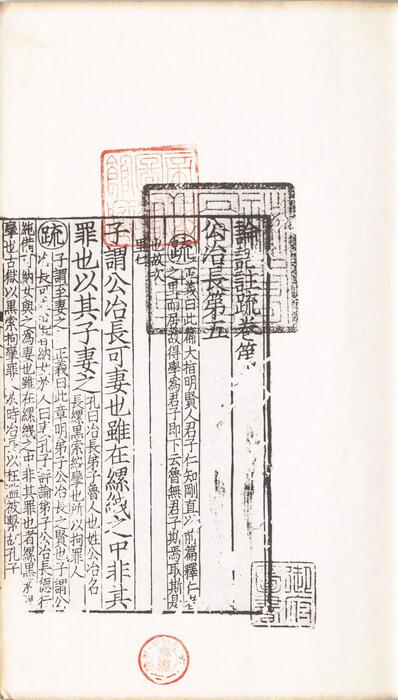 論語註疏卷第
公冶長第五
疏 正義曰此篇大指明賢人君子仁知剛直以前篇擇仁者
之里而居故得學為君子即下云魯無君子斯焉取斯是
也故次
里仁
子謂公冶長可妻也雖在縲絏之中非其
罪也以其子妻之 孔曰冶長弟子魯人也姓公冶名
長縲黑索絏攣也所以拘罪人
疏 子謂至妻之 正義曰此章明弟子公冶長之賢也子謂公
冶長可妻也者納女於人曰妻孔子評論弟子公冶長德行
純備可納女與之為妻也雖在縲絏之中非其罪也者縲黑索
攣也古獄以黑索拘攣罪人於時冶長以枉濫被繫故孔子
御府
圖書